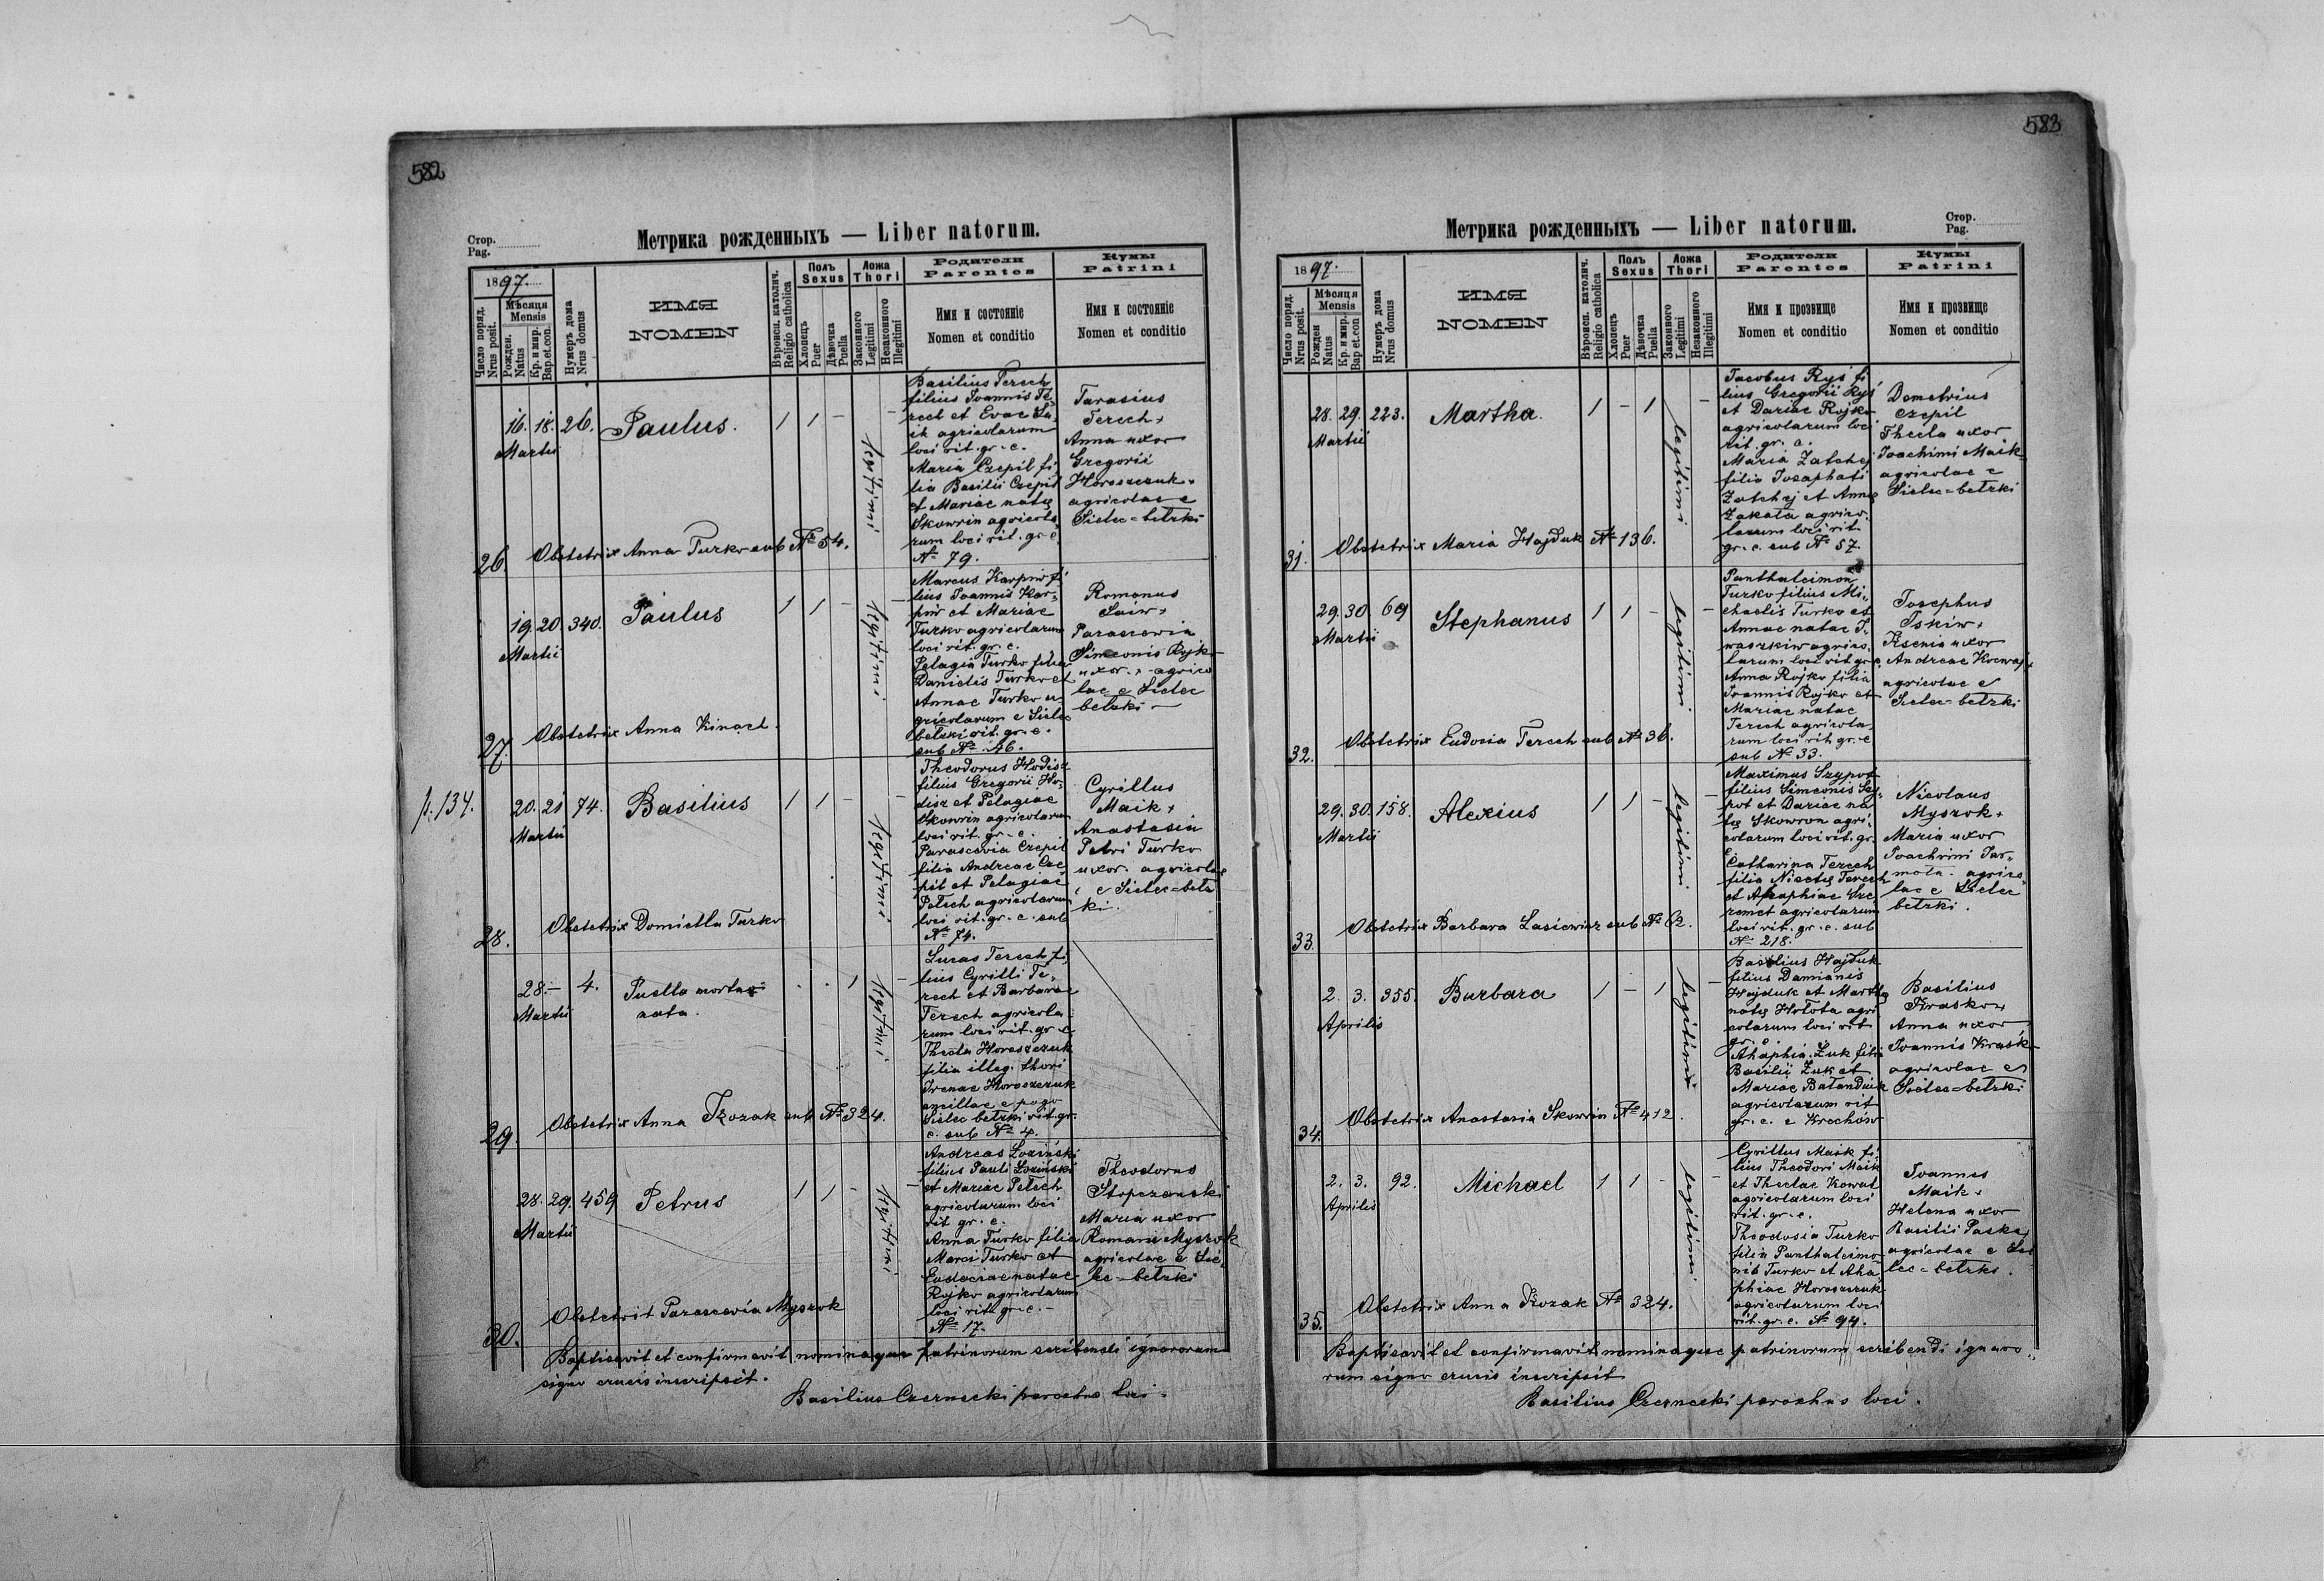 582
Стор.
Pag.
Метрика рожденныхъ — Liber natorum.
1897.
Число поряд.
Nrus posit.
Мѣсяця
Mensis
Рожден.
Natus
Кр. и мир.
Bap.et.con.
Нумеръ дома
Nrus domus
ИМЯ
NOMEN
Вѣроисп. католич.
Religio catholica
Полъ
Sexus
Хлопецъ
Puer
Дѣвочка
Puella
Ложа
Thori
Законного
Legitimi
Незаконного
Illegitimi
Родители
Parentes
Имя и состояніе
Nomen et conditio
Кумы
Patrini
Имя и состояніе
Nomen et conditio
16. 18. 26. Paulus. 1 1 - legitimi -
Martii
Basilius Terech
filius Joannis Te-
rech et Evae
agricolarum
loci rit. gr. c.
Maria Czepil fi-
lia Basilii Czepil
et Mariae natę
Skowrin agricola-
rum loci rit. gr. c.
Nº 79.
Tarasius
Terech +
Anna uxor
Gregorii
Horoszczuk +
agricolae e
Sielec-bełzki
26. Obstetrix Anna Turko sub Nº 54.
19. 20. 340. Paulus 1 1 - legitimi -
Martii
Marcus Karpiw fi-
lius Joannis Kar-
piw et Mariae
Turko agricolarum
loci rit. gr. c.
Pelagia Turko filia
Danielis Turko et
Annae Turko a-
gricolarum e Sielec
bełzki rit. gr. c.
sub Nº 46.
Romanus
Parascevia
Simeonis Rojko
uxor + agrico
lae e Sielec
bełzki
27. Obstetrix Anna Kinach.
p. 134.
20. 21 74. Basilius 1 1 - legitimi -
Martii
Theodorus Hodisz
filius Gregorii Ho-
disz et Pelagiae
Skowrin agricolarum
loci rit. gr. c.
Parascevia Czepil
filia Andreae Cze-
pil et Pelagiae
Pełech agricolarum
loci rit. gr. c. sub
Nº 74.
Cyrillus
Maik +
Anastasia
Petri Turko
uxor. agricolae
e Sielec-bełz
ki.
28. Obstetrix Domicella Turko
28. - 4. Puella mortua . . 1 legitimi -
Martii nata.
Lucas Terech fi-
lius Cyrilli Te-
rech et Barbarae
Terech agricola
rum loci rit. gr. c.
Thecla Horoszczuk
filia illeg. thori
Irenae Horoszczuk
ancillae e pago
Sielec bełzki rit. gr.
c. sub Nº 4.
29. Obstetrix Anna Kozak sub Nº 324.
28. 29. 459 Petrus 1 1 - legitimi -
Martii
Andreas Łoziński
filius Pauli Łoziński
et Mariae Pełech
agricolarum loci
rit gr. c.
Anna Turko filia
Marci Turko et
Eudociae natae
Rojko agricolarum
loci rit gr. c. -
Nº 17.
Theodorus
Stopczanski
Maria uxor
Romani Myszok
agricolae e Sie-
lec-bełzki
30. Obstetrit Parascevia Myszok
Baptisavit et confirmavit nominaque patrinorum scribendi ignororum
signo crucis inscripsit.
Basilius Czernecki parochus loci.
583
Стор.
Pag.
Метрика рожденныхъ — Liber natorum.
1897.
Число поряд.
Nrus posit.
Мѣсяця
Mensis
Рожден
Natus
Кр. и мир.
Bap et.con
Нумеръ дома
Nrus domus
ИМЯ
NOMEN
Вѣроисп. католич.
Religio catholica
Полъ
Sexus
Хлопецъ
Puer
Дѣвочка
Puella
Ложа
Thori
Законного
Legitimi
Незаконного
Illegitimi
Родители
Parentes
Имя и прозвище
Nomen et conditio
Кумы
Patrini
Имя и прозвище
Nomen et conditio
28. 29. 223. Martha. 1 - 1 legitimi -
Martii
Jacobus Ryś fi-
lius Gregorii Ryś
et Dariae Rojko
agricolarum loci
rit. gr. c.
Maria Zatchej
filia Josaphati
Zatchej et Annę
Zakała agrico-
larum loci rit.
gr. c. sub Nº 57.
Demetrius
Czepil
Thecla uxor
Joachimi Maik
agricolae e
Sielec-bełzki
31. Obstetrix Maria Hajduk Nº 136.
29. 30. 69 Stephanus 1 1 - legitimi -
Martii
Panthaleimon
Turko filius Mi-
chaelis Turko et
Annae natae I-
waszkiw agrico-
larum loci rit gr. c.
Anna Rojko filia
Joannis Rojko et
Mariae natae
Terech agricola
rum loci rit gr. c
sub Nº 33.
Josephus
Iskiw +
Ksenia uxor
Andreae
agricolae e
Sielec-bełzki
32. Obstetrix Eudocia Terech sub Nº 36.
29. 30. 158. Alexius 1 1 - legitimi -
Martii
Maximus Szypot
filius Simeonis Szy-
pot et Dariae na
tę Skowron agri-
colarum loci rit. gr.
c.
Catharina Terech
filia Nicetę Terech
et Ahaphiae Sze
remet agricolarum
loci rit. gr. c. sub
Nº 218.
Nicolaus
Myszok +
Maria uxor
Joachimi Jar-
mola. agrico-
lae e Sielec
bełzki.
33. Obstetrix Barbara Lasiewicz sub Nº 62.
2. 3. 355. Barbara 1 - 1 legitimi -
Aprilis
Basilius Hajduk
filius Damianis
Hajduk et Marthę
natę Hołota agri
colarum loci rit
gr. c.
Ahaphia Żuk filia
Basilii Żuk et
Mariae Bałanduk
agricolarum rit
gr. c. e Krechów
Basilius
Krasko +
Anna uxor
Joannis Krasko
agricolae e
Sielec-bełzki
34. Obstetrix Anastasia Skowrin Nº 412.
2. 3. 92. Michael 1 1 - legitimi -
Aprilis
Cyrillus Maik fi-
lius Theodori Maik
et Theclae Kowal
agricolarum loci
rit. gr. c.
Theodosia Turko
filia Panthaleimo
nis Turko et Aha
phiae Horoszczuk
agricolarum loci
rit. gr. c. Nº 94.
Joannes
Maik +
Helena uxor
Basilii
agricolae e Sie
lec-bełzki.
35. Obstetrix Anna Kozak Nº 324.
Baptisavit et confirmavit nominaque patrinorum scribendi ignaro-
rum signo crucis inscripsit
Basilius Czernecki parochus loci.